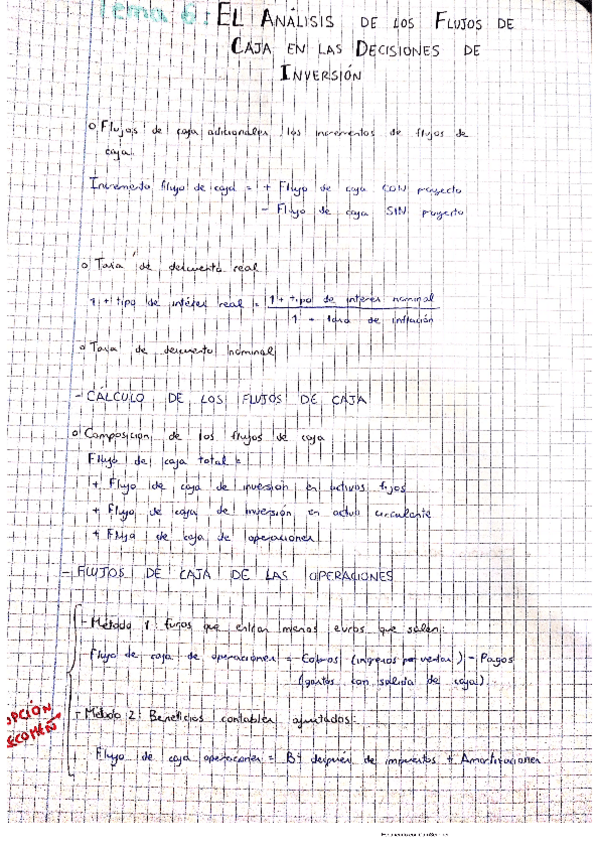 Tema 6: EL ANÁLISIS DE LOS FLUJOS DE
CAJA EN LAS DECISIONES DE
INVERSIÓN
o Flujos de caja adicionales, los incrementos de flujos de
caja.
Incremento flujo de caja = + Flujo de caja CON proyecto
- Flujo de caja SIN proyecto
o Tasa de descuento real
1 + tipo de interés real = 1 + tipo de interés nominal
1 + tasa de inflación
o Tasa de descuento nominal
- CÁLCULO DE LOS FLUJOS DE CAJA
o Composición de los flujos de caja
Flujo de caja total =
+ Flujo de caja de inversión en activos fijos
+ Flujo de caja de inversión en activo circulante
+ Flujo de caja de operaciones
- FLUJOS DE CAJA DE LAS OPERACIONES
- Método 1: Euros que entran menos euros que salen:
Flujo de caja de operaciones = Cobros (ingresos por ventas) - Pagos
(gastos con salida de caja)
OPCIÓN
- Método 2: Beneficios contables ajustados:
Flujo de caja operaciones = Bº despues de impuestos + Amortizaciones